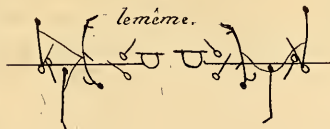 le même.